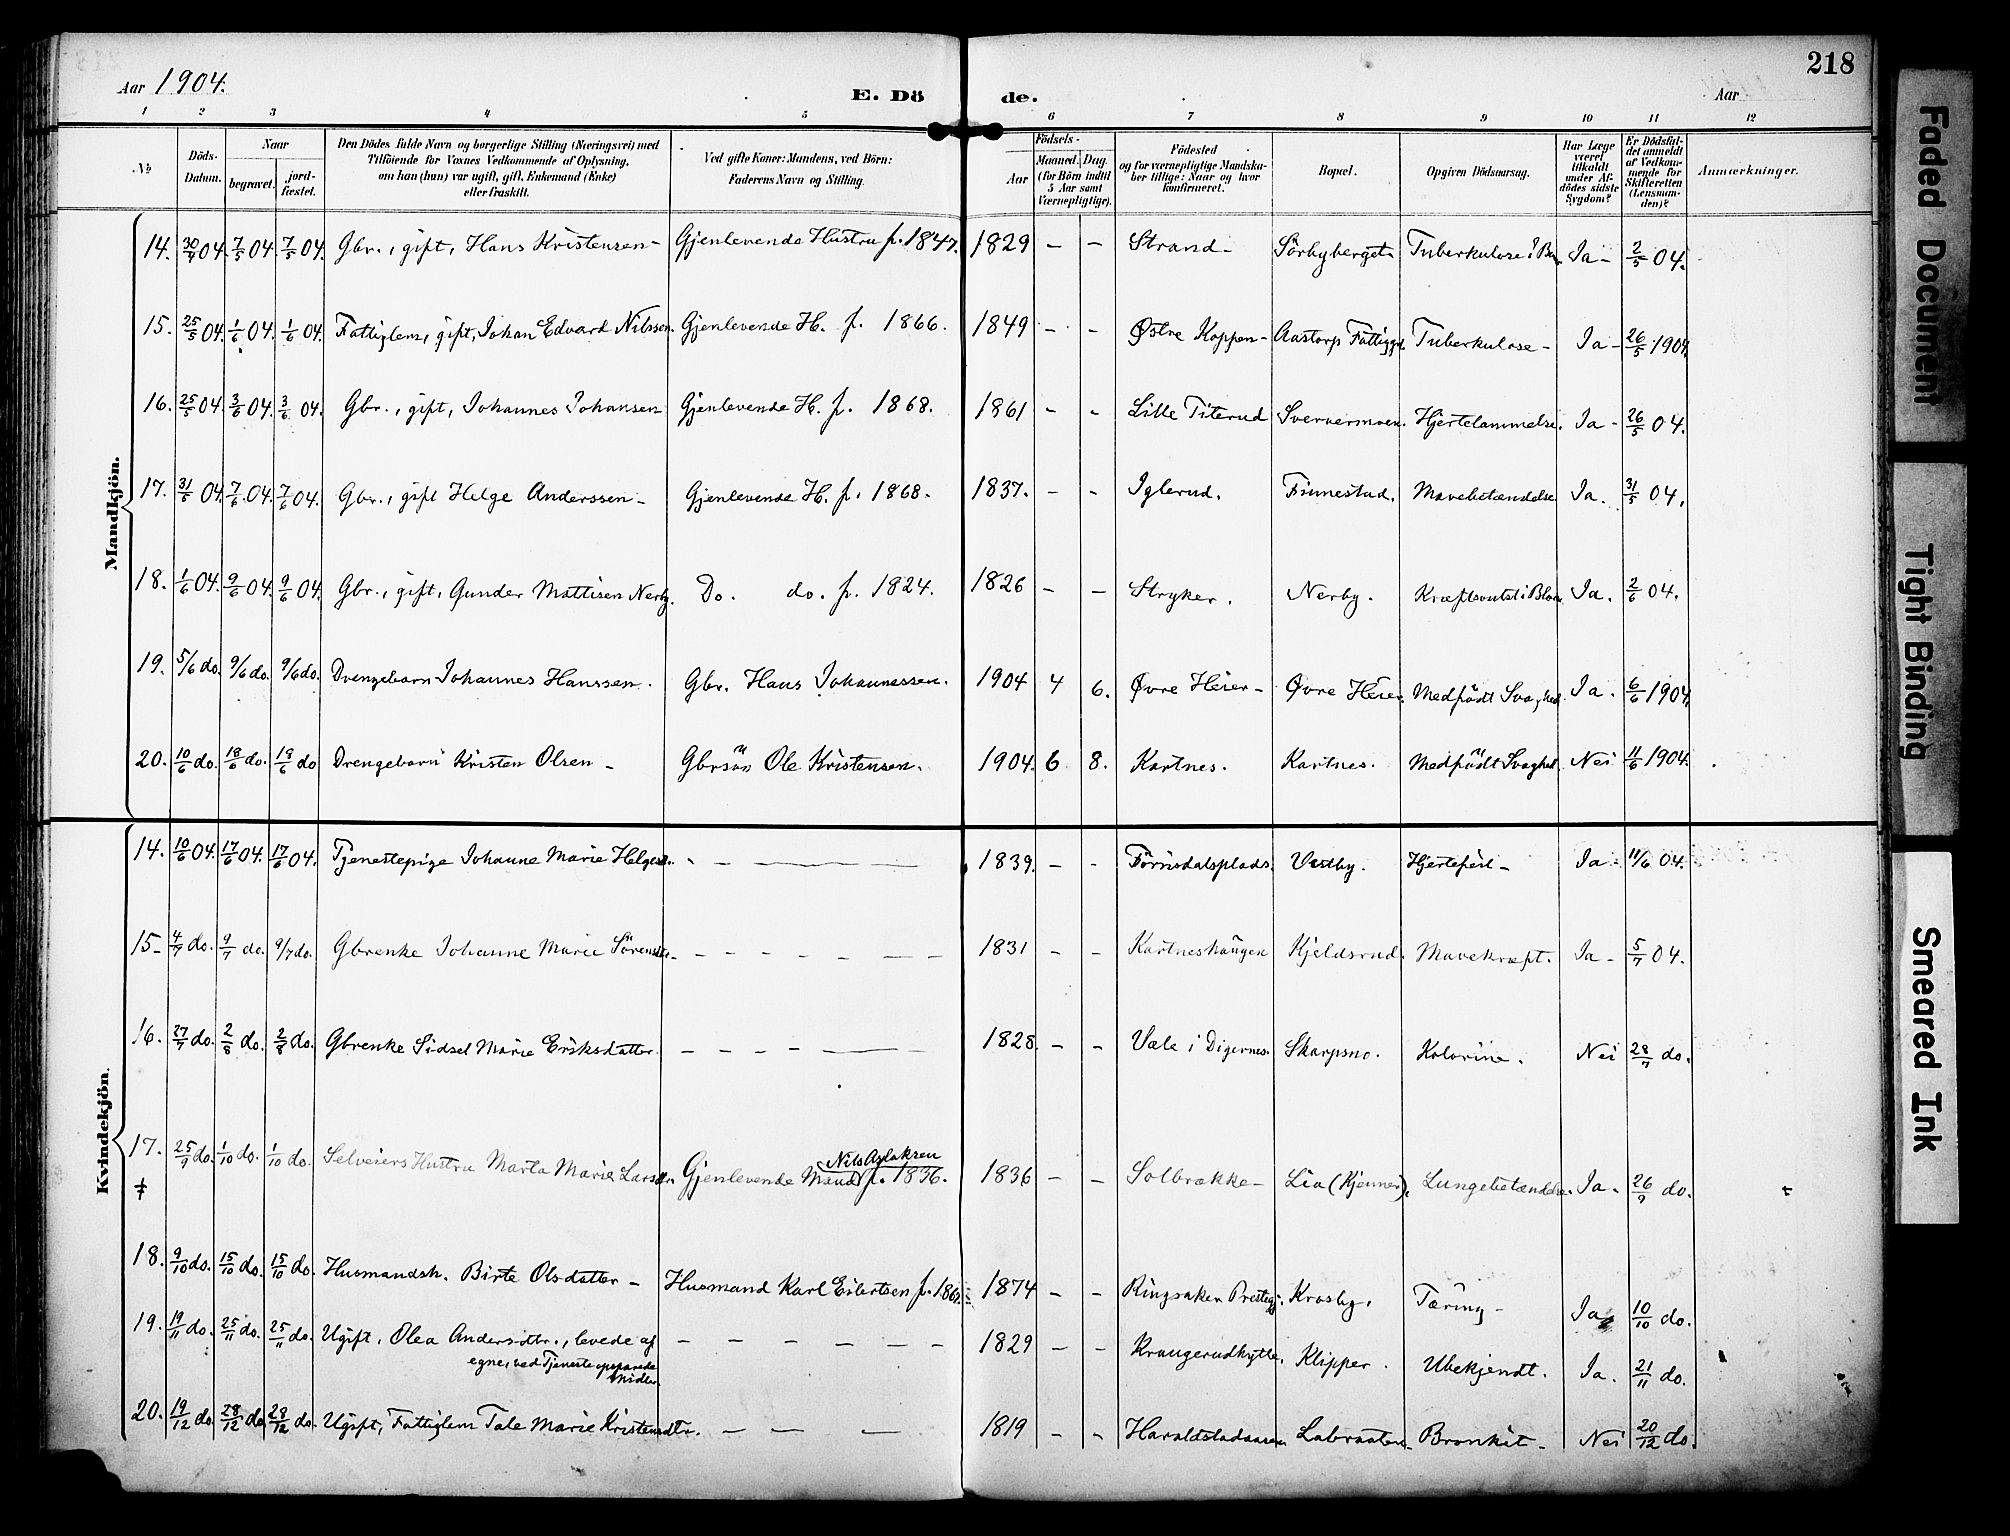 Aar 1904.
E. Dö de.
Aar
218
1 2 3 4 5 6 7 8 9 10 11 12
No
Döds-Datum.
Naar
begravet.
jord-fæstet.
Den Dödes fulde Navn og borgerlige Stilling (Næringsvei) med
Tilföiende for Voxnes Vedkommende af Oplysning,
om han (hun) var ugift, gift, Enkemand (Enke)
eller fraskilt.
Ved gifte Koner: Mandens, ved Börn:
Faderens Navn og Stilling.
Födsels-
Aar
Maaned. Dag.
(for Börn indtil
5 Aar samt
Værnepligtige).
Födested
og for værnepligtige Mandska-
ber tillige: Naar og hvor
konfirmeret.
Bopæl.
Opgiven Dödsaarsag.
Har Læge
været
tilkaldt
under Af-
dödes sidste
Sygdom?
Er Dödsfal-
det anmeldt
af Vedkom-
mende for
Skifteretten
(Lensman-
den)?
Anmærkninger.
Mandkjön.
14. 30/4 04. 7/5 04. 7/5 04. Gbr., gift, Hans Kristensen - Gjenlevende Hustru f. 1847. 1829 - - Strand - Sörbyberget - Tuberkulose i Ja - 2/5 04.
15. 25/5 04. 1/6 04. 1/6 04. Fattiglem, gift, Johan Edvard Nilssen. Gjenlevende H. f. 1866. 1849 - - Østre Koppen - Aastorp Fattiggd. Tuberkulose - Ja - 26/5 1904.
16. 25/5 04. 3/6 04. 3/6 04. Gbr., gift, Johannes Johansen Gjenlevende H. f. 1868. 1861 - - Lille Titerud Sververmoen. Hjertelammelse. Ja - 26/5 04.
17. 31/5 04. 7/6 04. 7/6 04. Gbr., gift Helge Anderssen - Gjenlevende H. f. 1868. 1837. - - Iglerud. Finnestad. Mavebetændelse Ja. 31/5 04.
18. 1/6 04. 9/6 04. 9/6 04. Gbr., gift, Gunder Mattisen Nerby. Do. do. f. 1824. 1826 - - Stryker. Nerby. Ja. 2/6 04.
19. 5/6 do. 9/6 do. 9/6 do. Drengebarn Johannes Hanssen. Gbr. Hans Johannessen. 1904 4 6. Øvre Heier - Øvre Heier. Medfödt Svaghed. Ja. 6/6 1904.
20. 10/6 do. 18/6 do. 18/6 do Drengebarn Kristen Olsen - Gbrsön Ole Kristensen. 1904. 6 8. Kartnes. Kartnes. Medfödt Svaghed. Nei 11/6 1904.
Kvindekjön.
14. 10/6 04. 17/6 04. 17/6 04. Tjenestepige Johanne Marie Helgesd. - - - 1839. - - Förrisdalsplads. Vestby. Hjertefeil - Ja - 11/6 04.
15 - 4/7 do. 9/7 do. 9/7 do. Gbrenke Johanne Marie Sörensdtr. - - - - - - 1831 - - Kartneshaugen Kjeldsrud. Mavekræft. Ja - 5/7 04.
16. 27/7 do. 2/8 do. 2/8 do. Gbrenke Sidsel Marie Eriksdatter. - - - - - 1828. - - Vale i Digernes. Skarpsno. Kolerine. Nei 28/7 do.
17. 25/9 do. 1/10 do. 1/10 do. Selveiers Hustru Marta Marie Larsdtr. Gjenlevende Mand Nils Aslaksen f. 1836. 1836 - - Solbrække - Lia (Kjemmer), Lungebetændelse. Ja. 26/9 do.
18. 9/10 do. 15/10 do. 15/10 do. Husmandsk. Birte Olsdatter - Husmand Karl Eilertsen f. 1874 - - Ringsaker Prestegj. Krosby. Tæring - Ja 10/10 do.
19. 19/11 do. 25/11 do. 25/11 do. Ugift, Olea Andersdtr., levede af - - - - - 1829 - - Kraugerudhytte. Klipper. Ubekjendt. Ja. 21/11 do.
egne, ved Tjeneste opsparede
Midler.
20. 19/12 do. 28/12 do 28/12 do. Ugift, Fattiglem Tale Marie Kristensdtr. - - - 1819 - - Labraaten - Bronkit - Nei 20/12 do.
Faded Document
Tight Binding
Smeared Ink